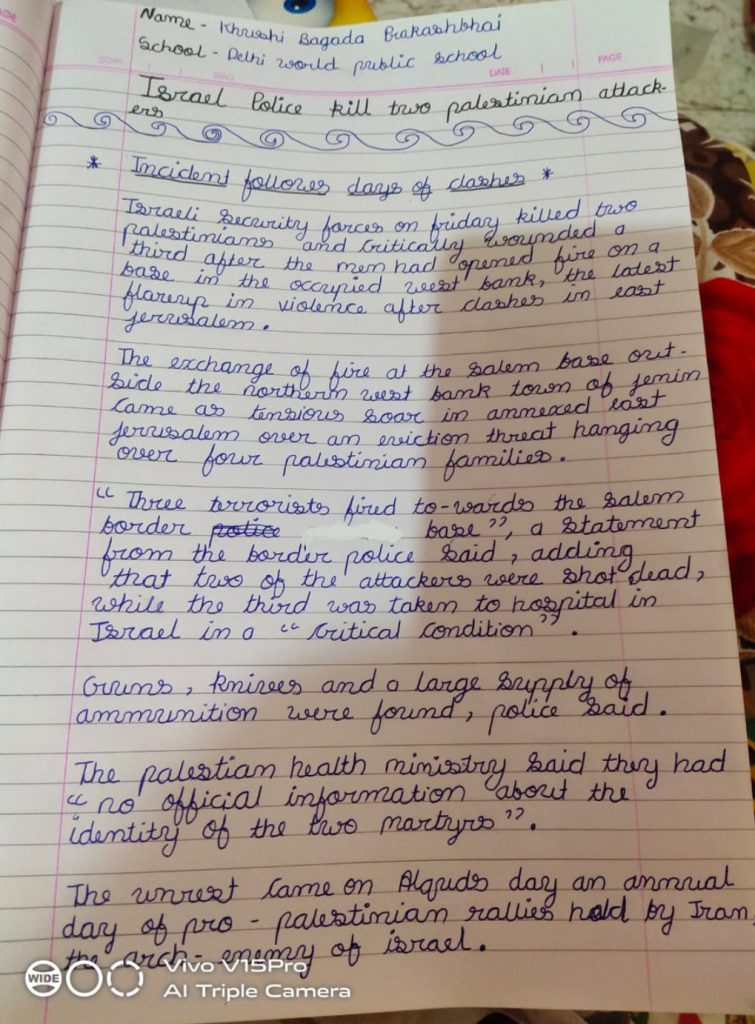 Name - Khushi Bagada Prakashbhai
School - Delhi world public school
DATE
PAGE
Israel Police kill two palestinian attack-
ers
* Incident follows days of clashes *
Israeli security forces on friday killed two
palestinians and critically wounded a
third after the men had opened fire on a
base in the occupied west bank, the latest
flareup in violence after clashes in east
jerusalem.
The exchange of fire at the salem base out-
side the northern west bank town of jenin
came as tensions soar in annexed east
jerusalem over an eviction threat hanging
over four palestinian families.
“ Three terrorists fired to-wards the salem
border police base”, a statement
from the border police said, adding
that two of the attackers were shot dead,
while the third was taken to hospital in
Israel in a “ critical condition”.
Guns, knives and a large supply of
ammunition were found, police said.
The palestian health ministry said they had
“ no official information about the
identity of the two martyrs”.
The unrest came on Alquds day an annual
day of pro - palestinian rallies held by Iran,
the arch- enemy of israel.
WIDE
Vivo V15Pro
AI Triple Camera